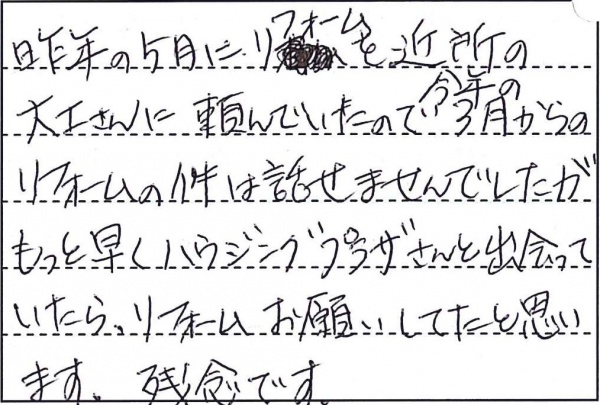 昨年の5月にリフォームを近所の
大工さんに頼んでいたので今年の3月からの
リフォームの件は話せませんでしたが
もっと早くハウジングプラザさんと出会って
いたら、リフォームお願いしてたと思い
ます。残念です。